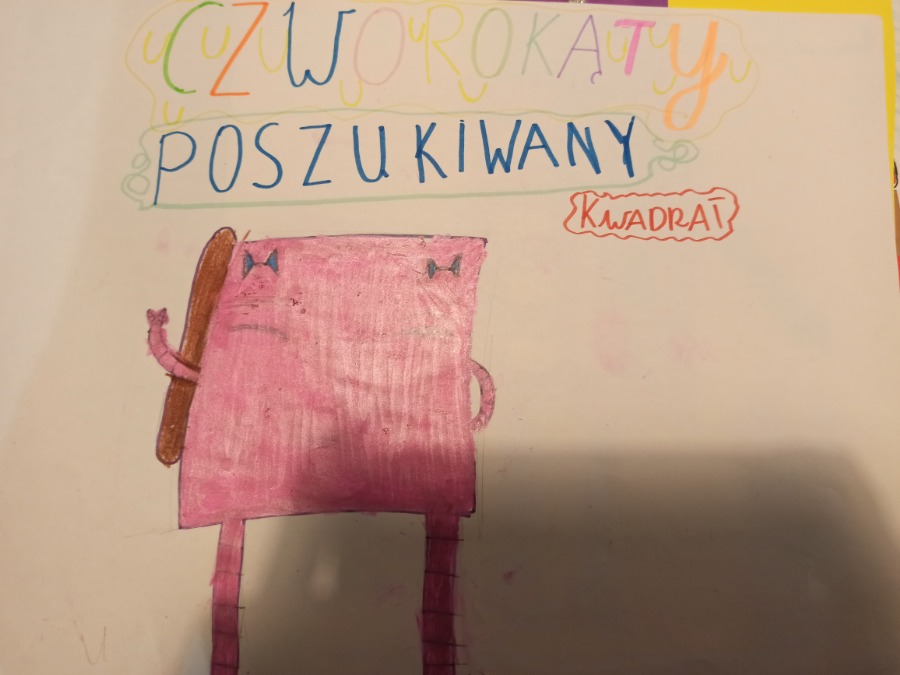 CZWOROKĄTY
POSZUKIWANY
KWADRAT